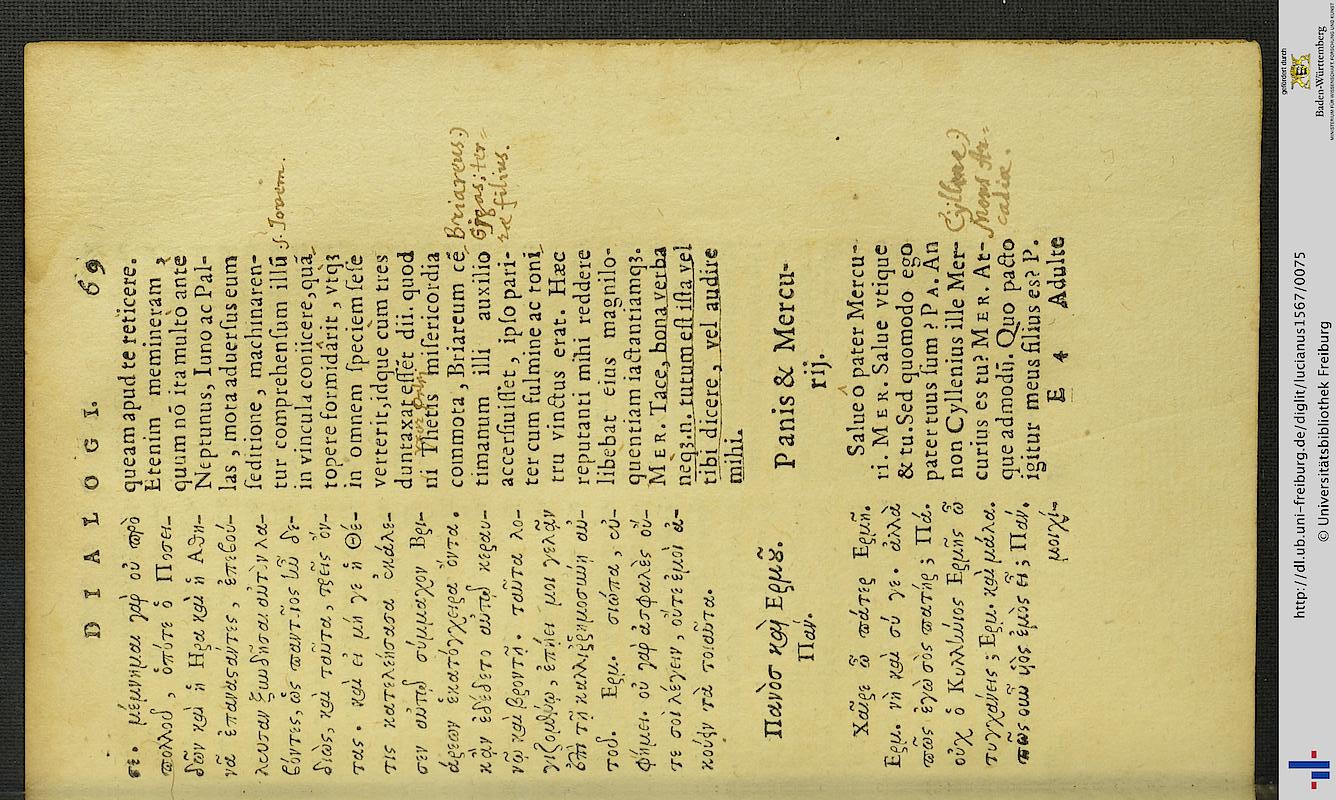 DIALOGI. 69
σε. μέμνημαι γὰρ οὐ πρὸ
πολλοῦ, ὁπότε ὁ Ποσει-
δῶν καὶ ἡ Ηρα καὶ ἡ Αθη-
νᾶ ἐπαναστάντες, ἐπεβού-
λευον ξυνδῆσαι αὐτὸν λα-
βόντες, ὡς παντοῖος ἦν δε-
διὼς, καὶ ταῦτα, τρεῖς ὄν-
τας. καὶ εἰ μή γε ἡ Θέ-
τις κατελεήσασα ἐκάλε-
σεν αὐτῷ σύμμαχον Βρι-
άρεων ἑκατόγχειρα ὄντα.
κἂν ἐδέδετο αὐτῷ κεραυ-
νῷ καὶ βροντῇ. ταῦτα λο-
γιζομένῳ, ἐπῄει μοι γελᾶν
ἐπὶ τῇ καλλιρρημοσύνῃ αὐ-
τοῦ. Ερμ. σιώπα, εὐ-
φήμει. οὐ γὰρ ἀσφαλὲς οὔ-
τε σοὶ λέγειν, οὔτε ἐμοὶ ἀ-
κούειν τὰ τοιαῦτα.
Πανὸσ καὶ Ερμοῦ.
Πάν.
Χαῖρε ὦ πάτερ Ερμῆ.
Ερμ. νὴ καὶ σύ γε. ἀλλὰ
πῶς ἐγὼ σὸς πατήρ; Πά.
οὐχ ὁ Κυλλήνιος Ερμῆς ὢν
τυγχάνεις; Ερμ. καὶ μάλα.
πῶς οὖν υἱὸς ἐμὸς εἶ; Πάν.
μοιχί-
queam apud te reticere.
Etenim memineram,
quum nō ita multò ante
Neptunus, Iuno ac Pal-
las, mota aduersus eum
seditione, machinaren-
tur comprehensum illū
in vincula coniicere, quā
topere formidârit, vtq;
in omnem speciem sese
verterit, idque cum tres
duntaxat essēt dii. quod
ni Thetis misericordia
commota, Briareum cē
timanum illi auxilio
accersiuisset, ipso pari-
ter cum fulmine ac toni
tru vinctus erat. Hæc
reputanti mihi reddere
libebat eius magnilo-
quentiam iactantiamq;.
MER. Tace, bona verba
neq;.n. tutum est ista vel
tibi dicere, vel audire
mihi.
Panis & Mercu-
rij.
Salue o pater Mercu-
ri. MER. Salue vtique
& tu. Sed quomodo ego
pater tuus sum? PA. An
non Cyllenius ille Mer-
curius es tu? MER. At-
que admodū. Quo pacto
igitur meus filius es? P.
E 4 Adulte
s. Iovem.
Briareus)
Gygas; ter-
ræ filius.
Cyllene)
Mons Ar-
cadiæ.
http://dl.ub.uni-freiburg.de/diglit/lucianus1567/0075
© Universitätsbibliothek Freiburg
gefördert durch
Baden-Württemberg
MINISTERIUM FÜR WISSENSCHAFT, FORSCHUNG UND KUNST